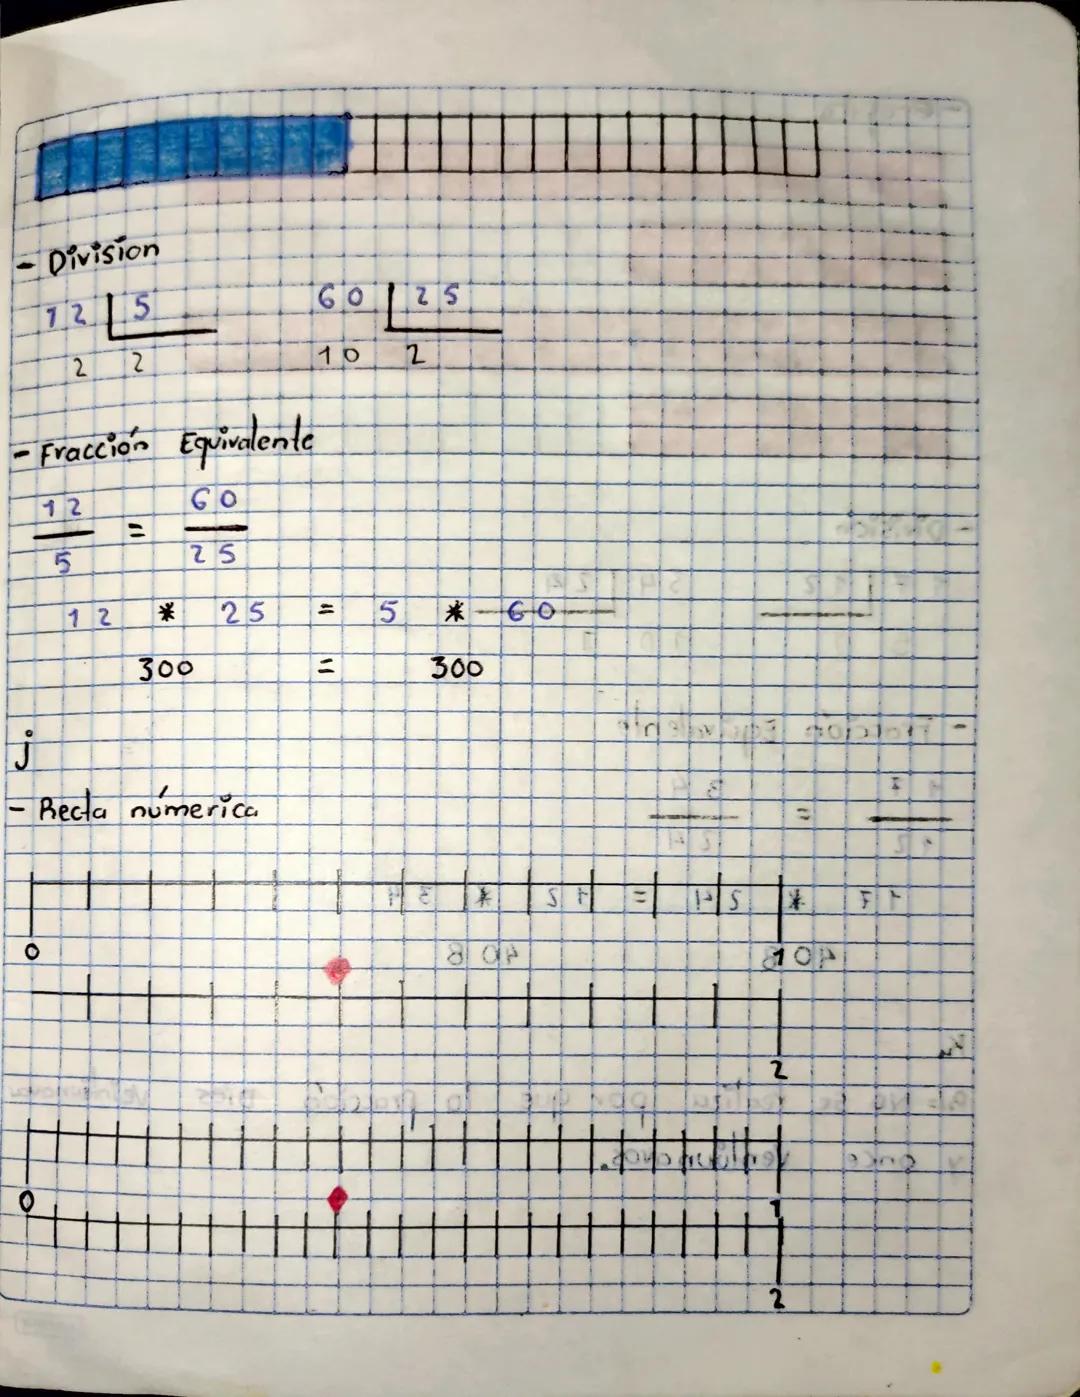 - División
12 5 60 25
2 2 10 2
- Fracción Equivalente
12 = 60
5 25
12 * 25 = 5 * 60
300 = 300
j
- Recta númerica
0 1
2
0 1
2